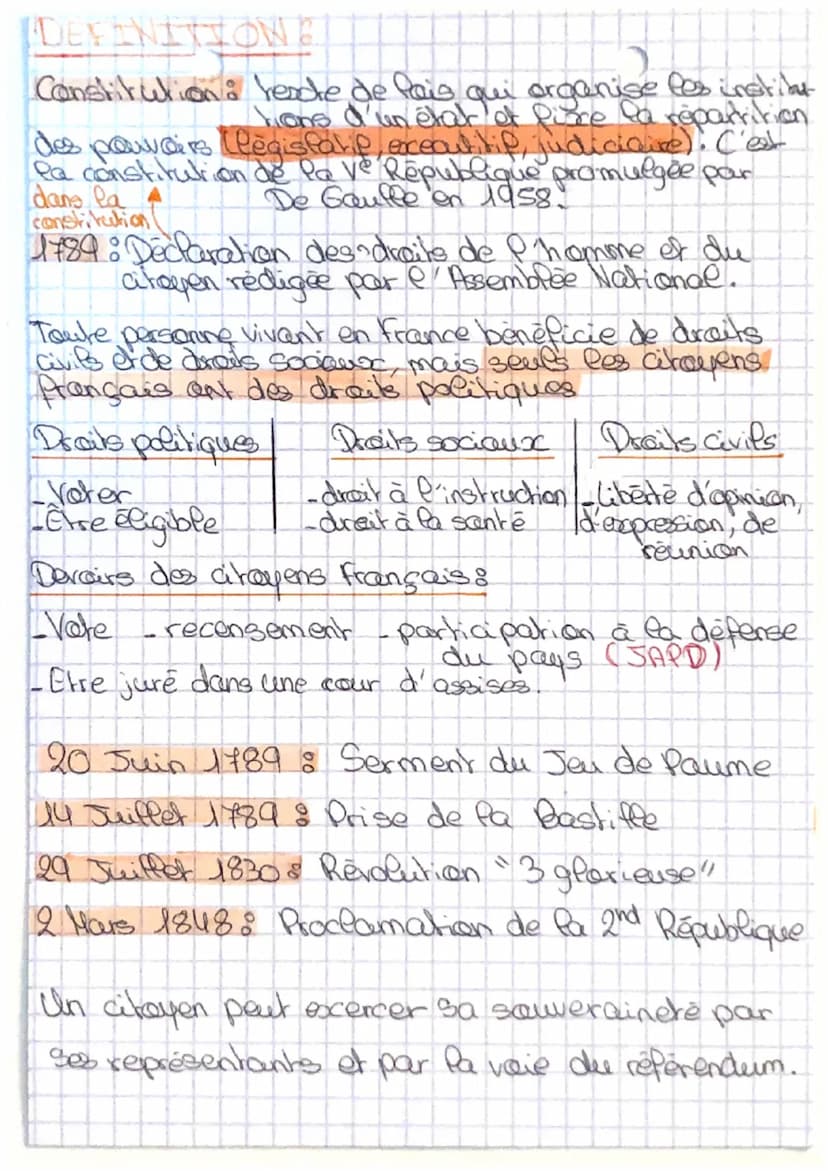 DEFINITION :
Constitution : texte de lois qui organise les institu-
tions d'un état et fixe la répartition
des pouvoirs (législatif, executif, judiciaire). C'est
la constitution de la Ve République promulgée par
dans la De Gaulle en 1958.
constitution
1789 : Déclaration des droits de l'homme et du
citoyen rédigée par l'Assemblée National.
Toute personne vivant en france bénéficie de droits
civils et de droits sociaux, mais seuls les citoyens
français ont des droits politiques
Droits politiques Droits sociaux Droits civils
- Voter - droit à l'instruction - liberté d'opinion,
- Être éligible - droit à la santé d'expression, de
réunion
Devoirs des citoyens français :
- Vote - recensement - participation à la défense
du pays (JAPD)
- Etre juré dans une cour d'assises.
20 Juin 1789 : Serment du Jeu de Paume
14 Juillet 1789 : Prise de la Bastille
29 Juillet 1830 : Révolution "3 glorieuse"
2 Mars 1848 : Proclamation de la 2nd République
Un citoyen peut excercer sa souveraineté par
ses représentants et par la voie du référendum.